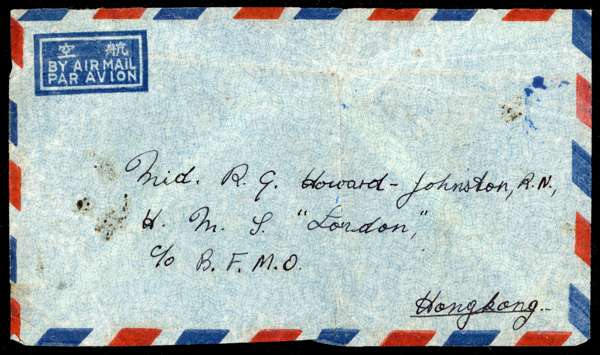 空 航
BY AIR MAIL
PAR AVION
Mid. R. G. Howard-Johnston, R.N.,
H. M. S. "London,"
c/o B. F. M. O.
Hongkong.